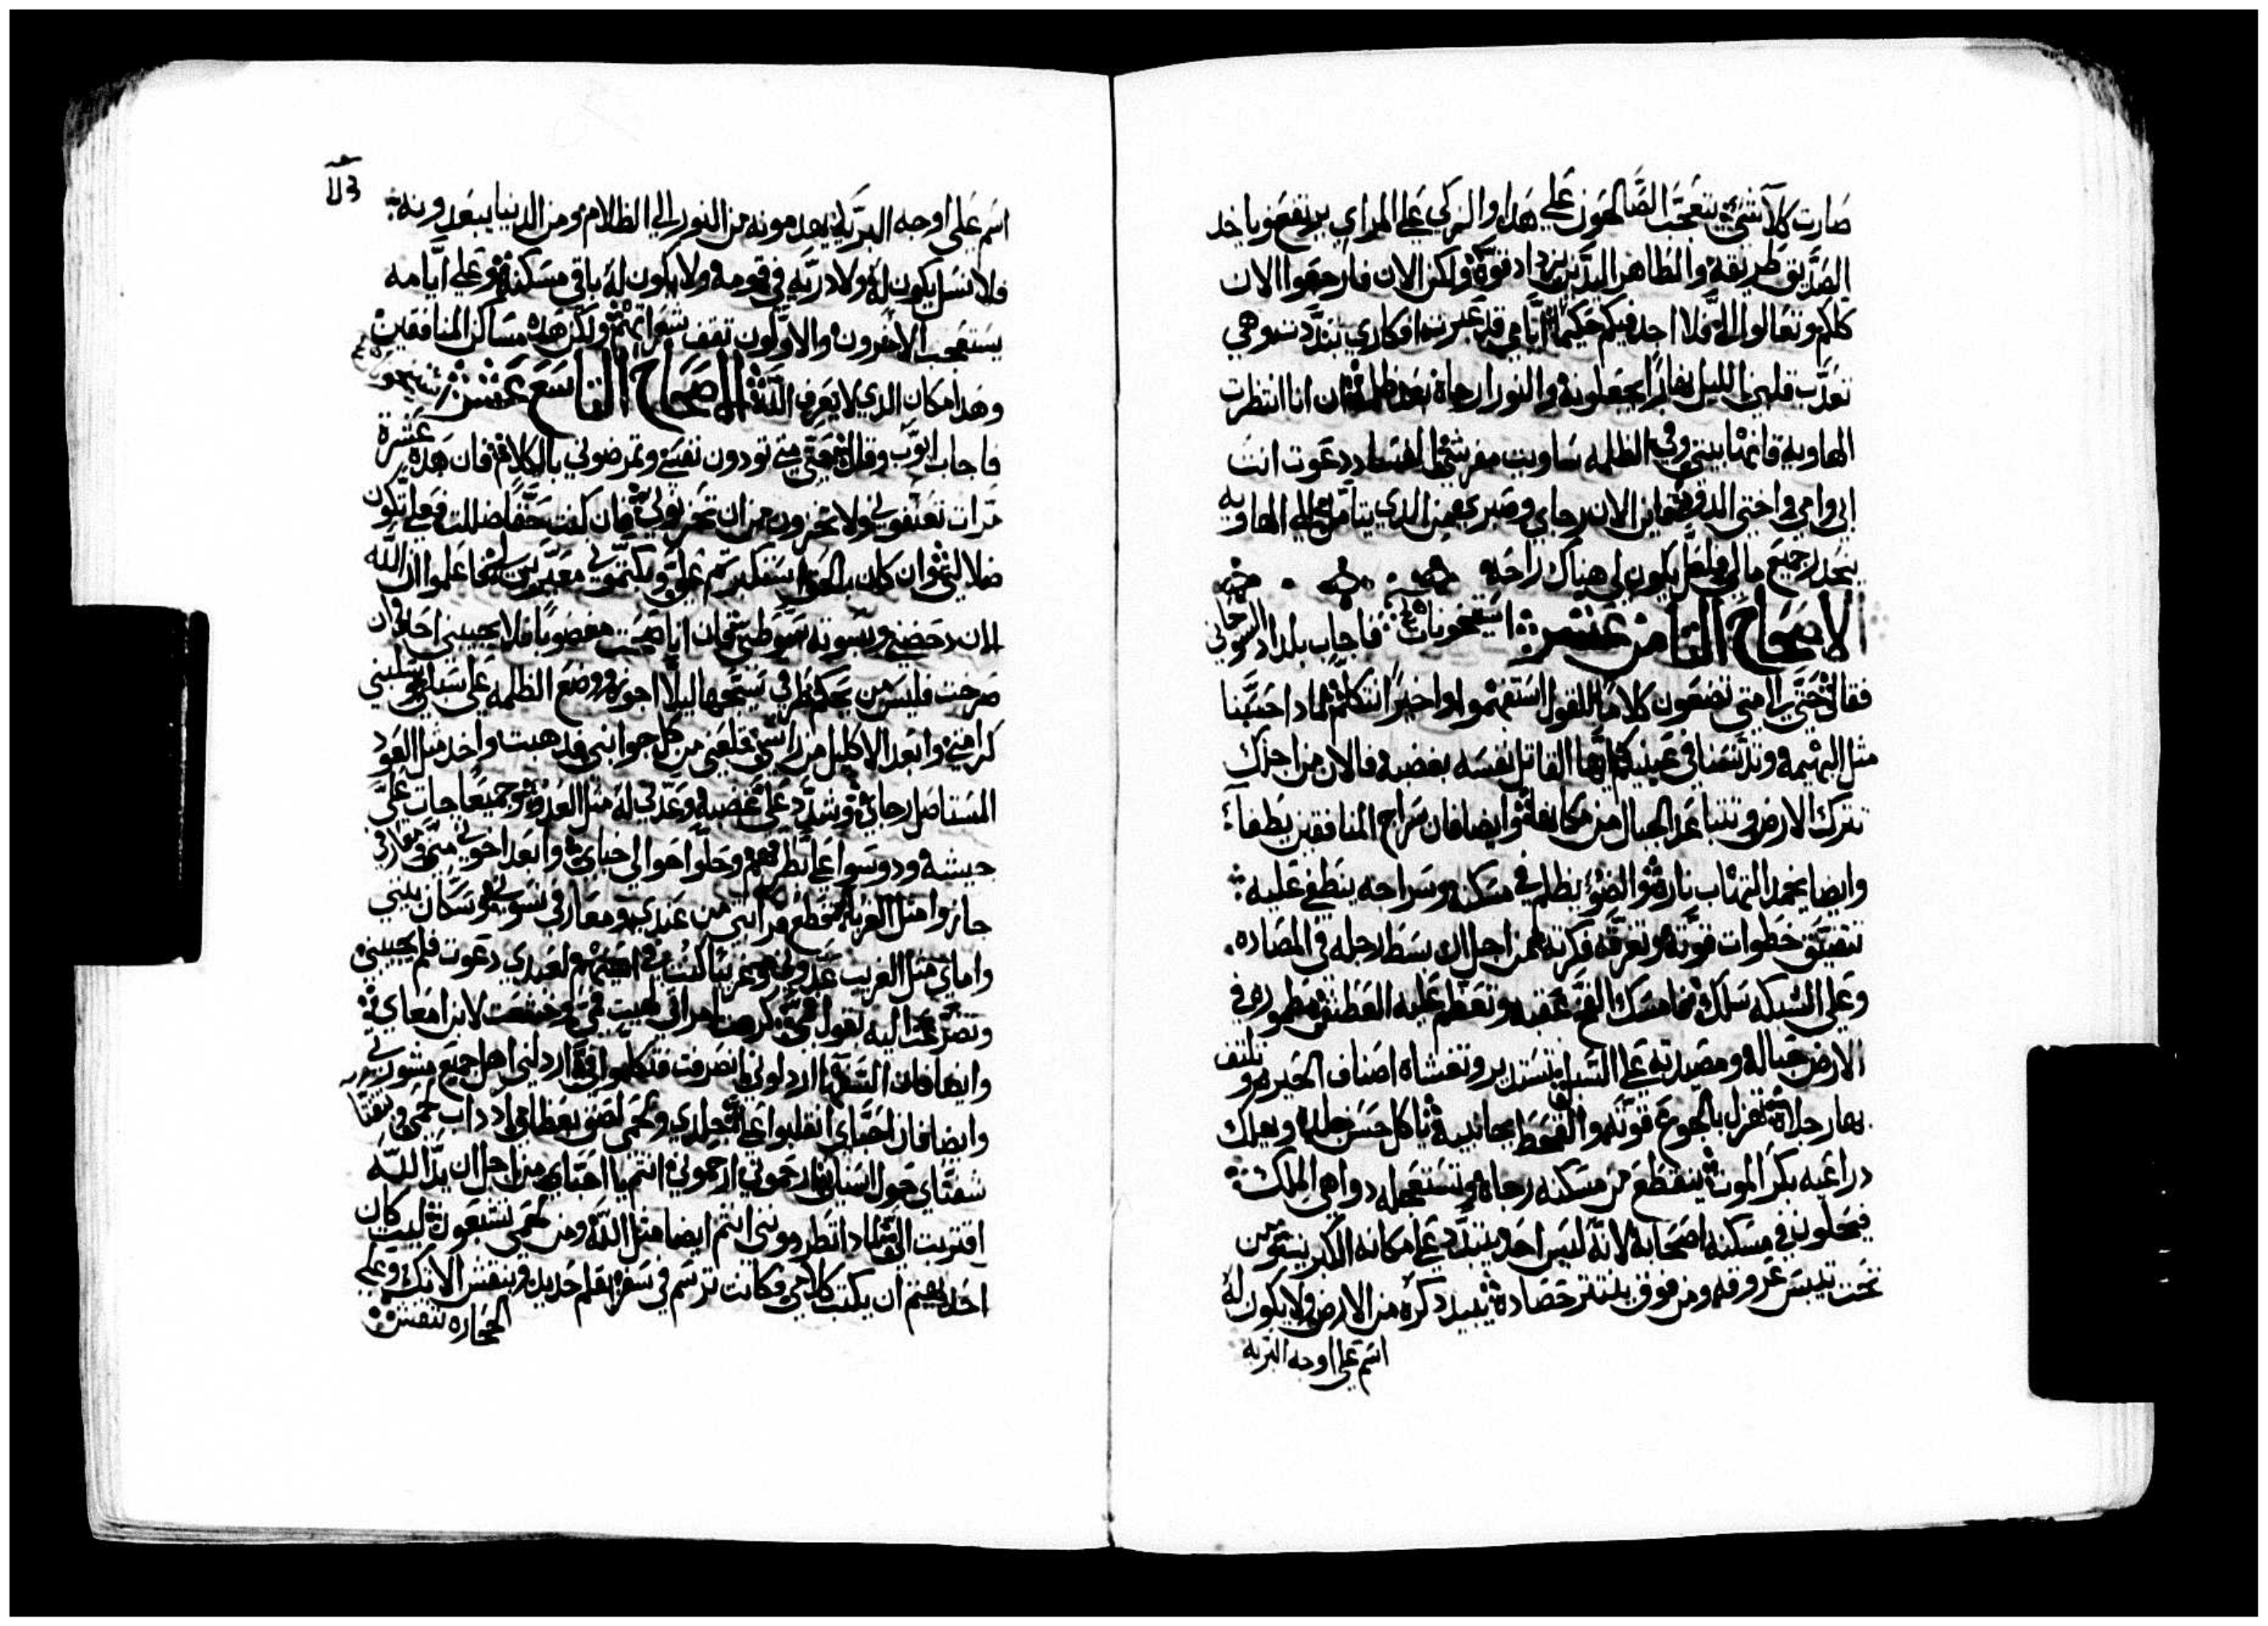 صارت كلا شي يتعجب الصالحون علي هدا والزكي علي المراي يرتفع وياخد
الصديق طريقه والطاهر اليدين يزداد قوة ولكن الان فارجعوا الان
كلكم وتعالوا الي فلا اجد فيكم حكيما ايامي قد عبرت افكاري تبددت وهي
تعدب قلبي الليل نهارا يجعلونه والنور ارجاه بعد ظلمة ان انا انتظرت
الهاوية فانها بيتي وفي الظلمه ساويت مفرشي للفساد دعوت انت
ابي وامي واختي الدود فاين الان رجاي وصبري فمن الدي يتامل الي الهاويه
ينحدر جميع مالي فلعل يكون لي هناك راحه
الاصحاح الثامن عشر فاجاب بلداد السوحاني
فقال حتي الا متي تضعون كلاما للقول استفهموا واخيرا نتكلم لمادا حسبنا
مثل البهيمه وتدنسنا في عينيك ايها القاتل نفسه بغضبه فالان من اجلك
تترك الارض وتنتبا عد الجبال من مكانها وايضا فان سراج المنافقين يطفا
وايضا يخمد التهاب ناره والضو يظلم في مسكنه وسراجه ينطفي عليه
تتضيق خطوات قوته وتغرقه فكرته من اجل انه بسط رجله في المصاده
وعلي الشبكه سلك فخا مسك الفخ عقبه وتعظم عليه العطش مطموره في
الارض حباله ومصيدته علي السبيل تستدير وتغشاه اصناف الحير وتلتف
بها رجلاه تهزل بالجوع قوته والقحط بجانبيه تاكل حسن جلده ويهلك
دراعيه بكر الموت ينقطع من مسكنه رجاه وتستعجله دواهي الملك
فيحلون في مسكنه اصحابه لانه ليس احد يتبدد علي مكانه الكبريت من
تحت تيبس عروقه ومن فوق ينتثر حصاده يبيد دكره من الارض ولا يكون له
اسم علي اوجه البريه
اسم علي اوجه البريه يعدمونه من النور الي الظلام ومن الدنيا يبعدونه
فلا نسل يكون له ولا دريه في قومه ولا يكون له باقي مسكنه وعلي ايامه
يستعجب الاخرون والاولون تقف شعراتهم ولكن هده مساكن المنافقين
وهدا مكان الدي لا يعرف الله الاصحاح التاسع عشر
فاجاب ايوب وقال حتي متي تودون نفسي وتمرضوني بالكلام فان هده عشرة
مرات تعنفوني ولا تخزون من ان تحزنوني فان كنت حقا ضللت فعلي تكون
ضلالتي وان كان بالحق استكبرتم علي وبكتموني معيرين لي فاعلموا ان الله
الان دحضني وبسوته سوطني فان اياهنت مغصوبا فلا يجيبني احد وان
صرخت فليس من يحكم طرقي سيجها ليلا اجوز ووضع الظلمه علي سبلي سلبني
كرامتي وابعد الاكليل من راسي قلعني من كل جوانبي فدهبت واخد مثل العود
المستاصل رجاي وشدد علي غضبه وعدني له مثل العدو وجميعا جات علي
جيشه ودوسوا علي طرقهم وحلوا حوالي خباي وابعد اخوتي مني ومعارفي
جازوا مثل الغربا انقطع قرابتي من عندي ومعارفي نسوني سكان بيتي
واماي مثل الغريب عدوني وغريبا كنت في اعينهم لعبدي دعوت فلم يجيبني
وتضرعت اليه بقول فمي كرهت امراتي هيت فمي وخشعت لابن امعاي
وايضا فان السفها ازدلوني انصرفت فتكلموا في ازدلني اهل جميع مشورتي
وايضا فان احباي انقلبوا علي جلدي ولحمي لصق بعظامي وداب لحمي وبقتا
شفتاي حول اسناني ارحموني ارحموني انتم يا احباي من اجل ان يد الله
اقتربت الي لمادا تطردوني انتم ايضا مثل الله ومن لحمي تشبعون ليت كان
احد يهتم ان يكتب كلامي وكانت ترسم في سفر بقلم حديد وبنقش الانك وعلي
الحجاره تنقش